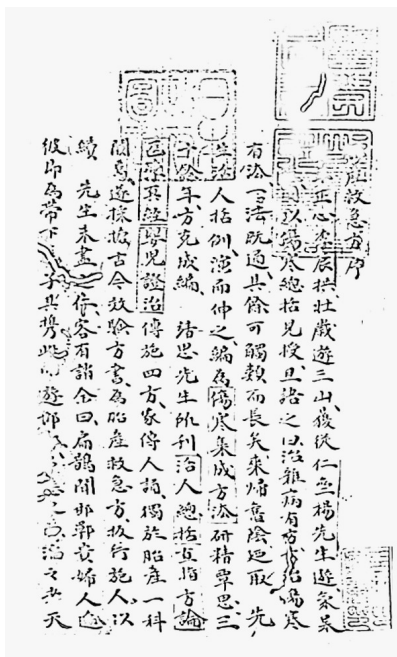 產救急方序
正心李辰拱壯歲遊三山獲從仁齋楊先生遊氣味
以傷寒總括見授且語之曰治雜病有方法治傷寒
有法一法既通其餘可觸類而長矣來歸舊隱廼取先
生活人括例演而伸之編為傷寒集成方法研精覃思三
十餘年方克成編諸思先生所刊活人總括直指方論
醫學真經嬰兒證治傳施四方家傳人誦獨於胎產一科
闕焉遂採摭古今效驗方書為胎產救急方板行施人以
續先生未盡之傳客有誚余曰扁鵲聞邯鄲貴婦人
彼即為帶下子其攜此遊邯